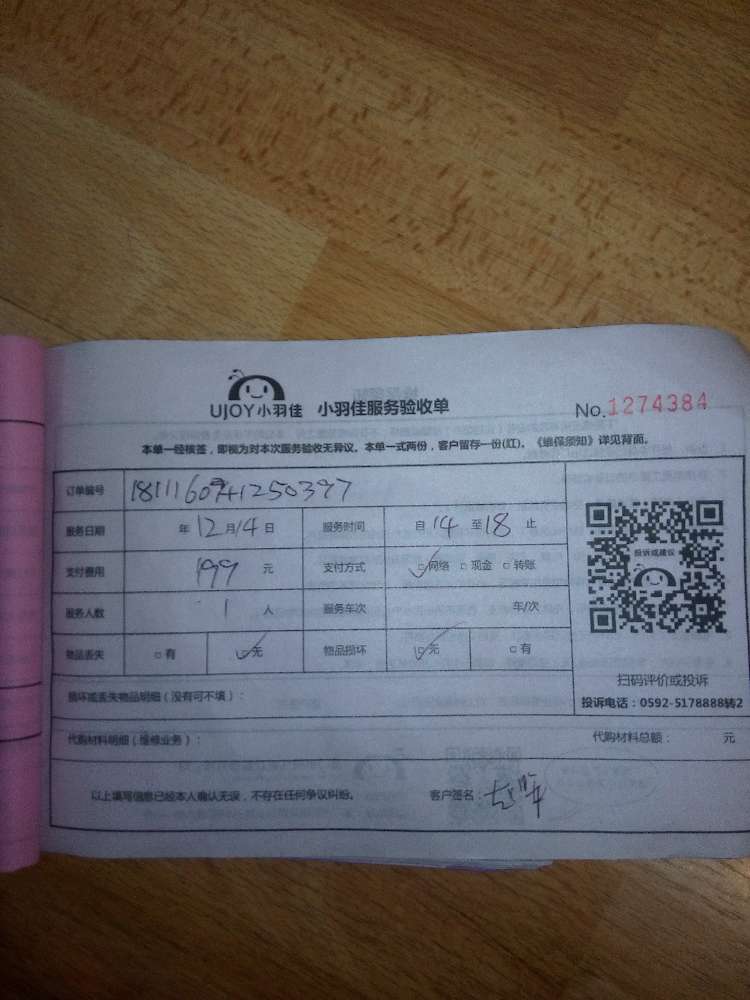 UJOY小羽佳 小羽佳服务验收单 No.1274384
本单一经核签，即视为对本次服务验收无异议。本单一式两份，客户留存一份(红)。《维保须知》详见背面。
订单编号
服务日期 年12月14日 服务时间 自14至18止
支付费用 199元 支付方式 网络 现金 转账
服务人数 1人 服务车次 年/次
物品丢失 有 无 物品损坏 无 有
投诉或建议
扫码评价或投诉
投诉电话：0592-5178888转2
损坏或丢失物品明细（没有可不填）：
代购材料明细（维修业务）： 代购材料总额： 元
以上填写信息已经本人确认无误，不存在任何争议纠纷。 客户签名：